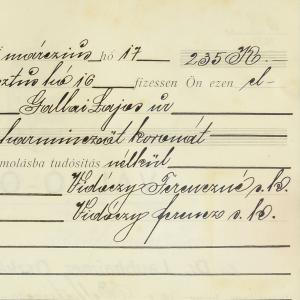 márczius hó 17 235 K.
ztus hó 16 fizessen Ön ezen el-
Gallai Lajos úr
harminczöt koronát
molásba tudósítás nélkül
Vidóczy Ferenczné s.k.
Vidóczy Ferencz s.k.